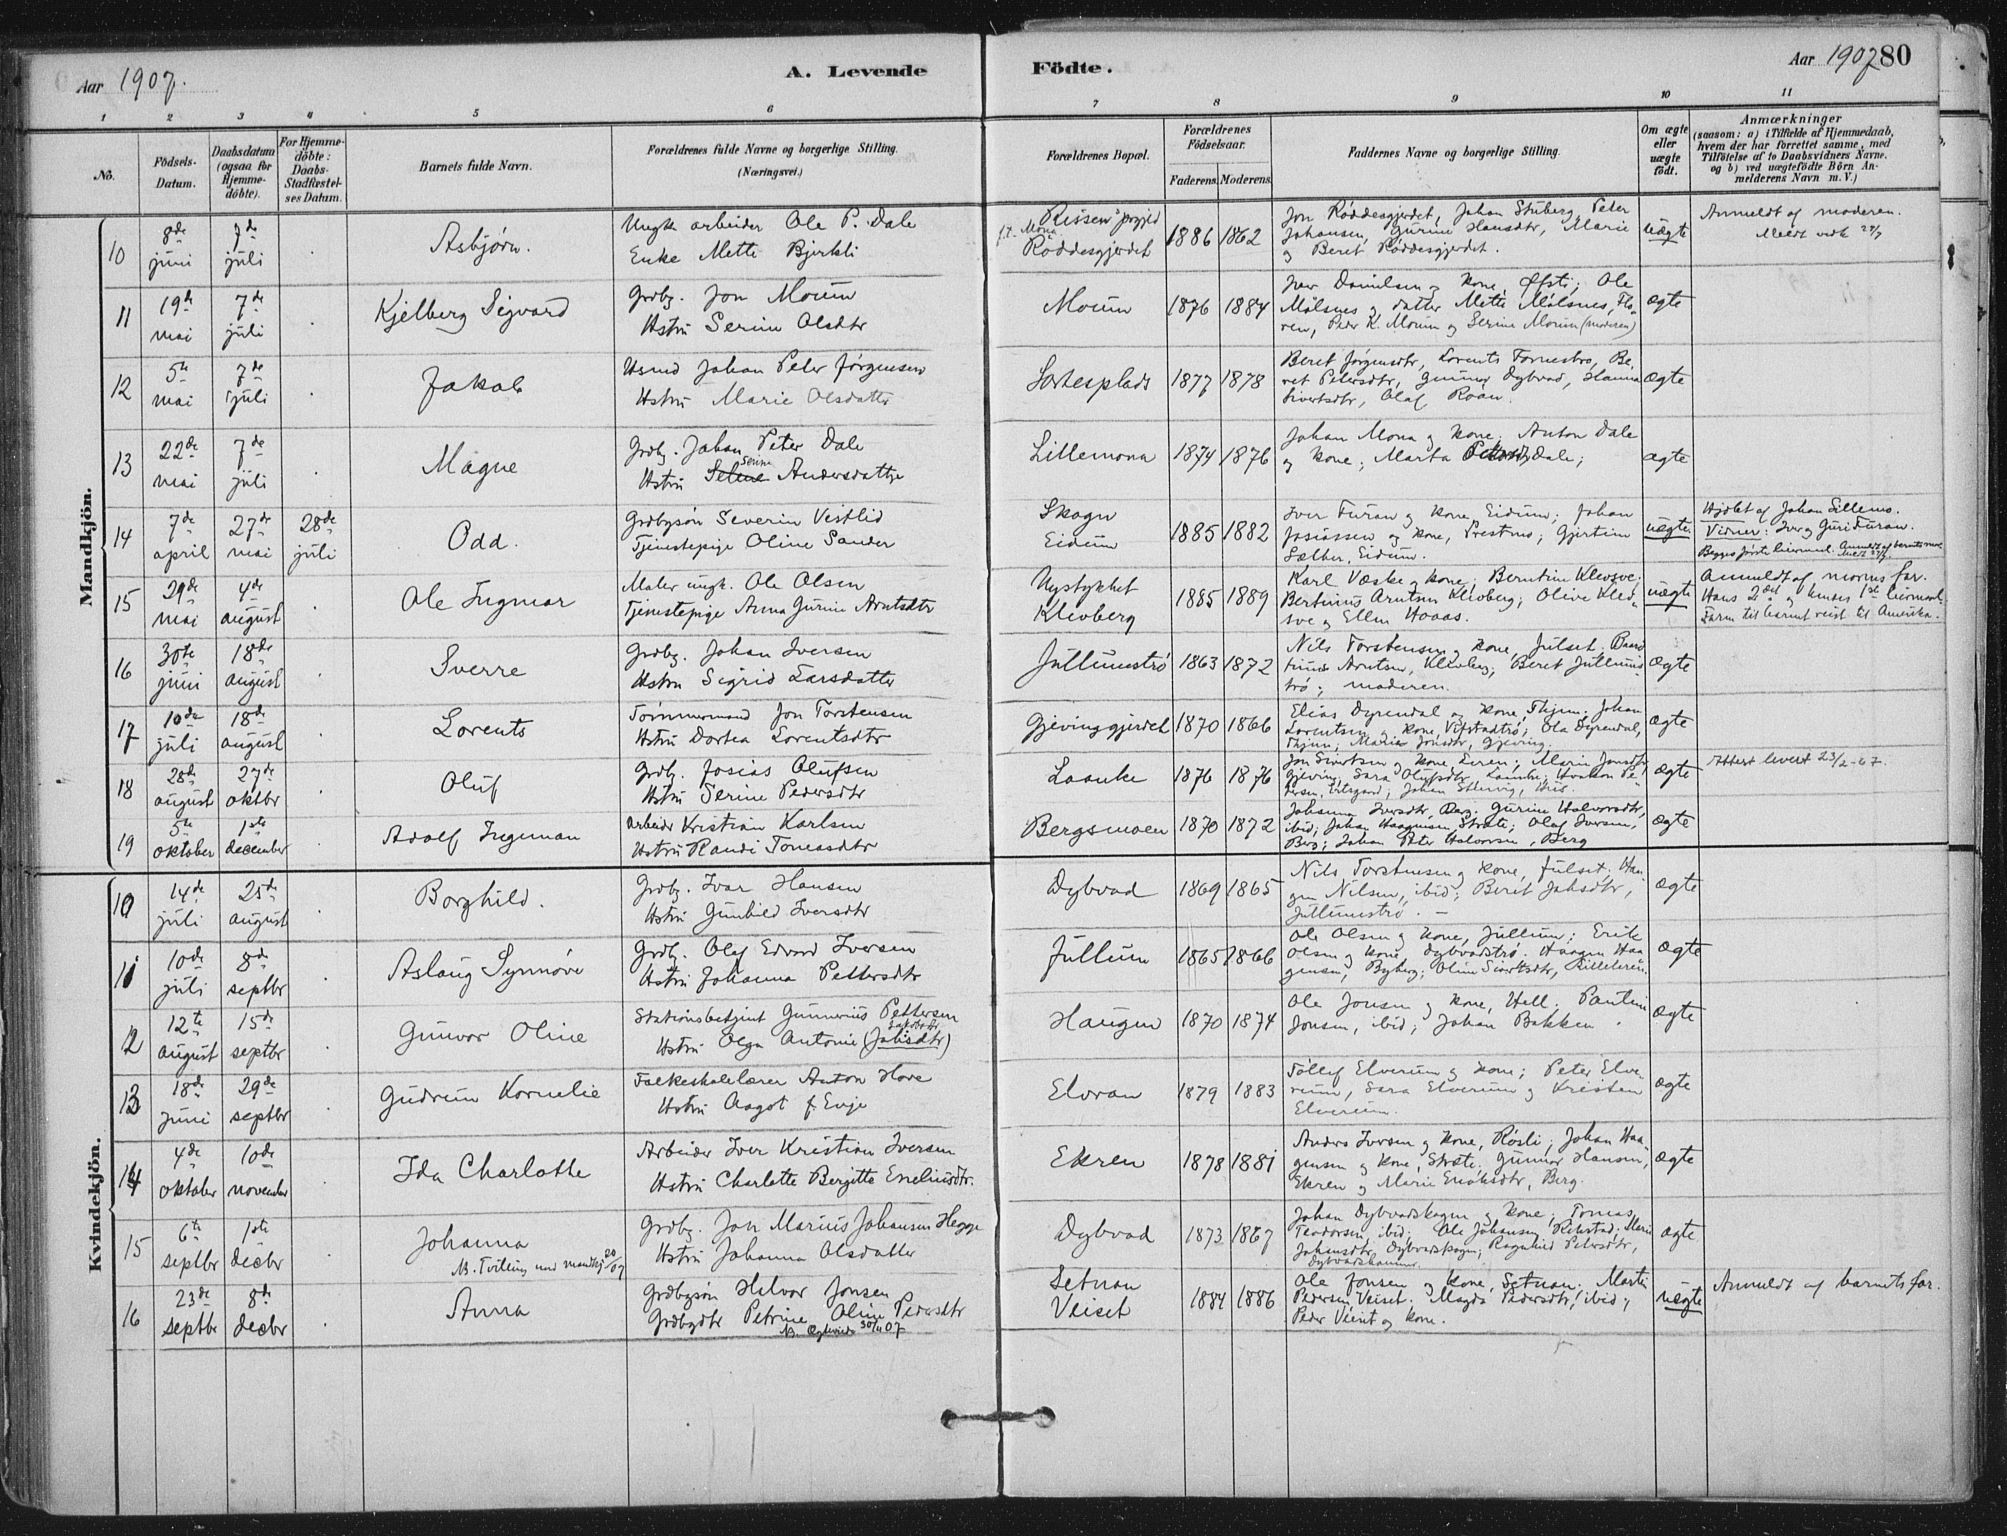 Aar 1907.
A. Levende
Födte.
Aar 1907
80
1 2 3 4 5 6 7 8 9 10 11
No.
Födsels-
Datum.
Daabsdatum
(ogsaa for
Hjemme-
döbte).
For Hjemme-
döbte:
Daabs-
Stadfæstel-
ses Datum.
Barnets fulde Navn.
Forældrenes fulde Navne og borgerlige Stilling.
(Næringsvei.)
Forældrenes Bopæl.
Forældrenes
Födselsaar.
Faderens. Moderens.
Faddernes Navne og borgerlige Stilling.
Om ægte
eller
uægte
födt.
Anmærkninger
(saasom: a) i Tilfælde af Hjemmedaab,
hvem der har forrettet samme, med
Tilföielse af to Daabsvidners Navne.
og b) ved uægtefödte Börn An-
melderens Navn m. V.)
Mandkjön.
10 8de juni 7de juli Asbjørn.
Ungk. arbeider Ole P. Dale
Enke Metti Bjerkli
Rissen prgjeld
f.t. Mona
Røddesgjerdet
1886 1862
Jon Røddesgjerdet, Johan Stuberg, Peter
Johansen, Gurine Hansdtr, Marie
og Beret Røddesgjerdet.
uægte
Anmeldt af moderen.
11 19de mai 7de juli Kjelberg Sigvard
Grdbg. Jon Moum
Hstru Serine Olsdtr
Moum 1876 1884
Iver Danielsen og kone, Øfsti; Ole
Målsnes og datter Mette Målsnes, Flo-
ren, Peder K. Moum og Serine Moum (moderen)
ægte
12 5te mai 7de juli Jakob
Husmd Johan Peter Jørgensen
Hstru Marie Olsdatter
Sortesplads 1877 1878
Beret Jørgensdtr, Lorents Fornesbro, Be-
ret Petersdtr, Gunnar Dybvad, Hanna
Sivertsdtr, Olaf Roan.
ægte
13 22de mai 7de juli Magne
Grdbg. Johan Peter Dale
Serine
Hstru Selene Andersdatter
Lillemona 1874 1876
Johan Mona og kone; Anton Dale
og kone; Marta Dale;
ægte
14 7de april 27de mai 28de juli Odd.
Grdbgsøn Severin Vestlid
Tjenestepige Oline Sander
Skogn
Eidum
1885 1882
Iver Furan og kone, Eidum; Johan
Josiassen og kone, Prestmo; Gjertine
Sæther, Eidum.
uægte
Hjdbt af Johan Lillemo.
Vidner: Iver og Guri Furan.
15 29de mai 4de august Ole Ingmar
Maler ungk. Ole Olsen
Tjenestepige Anna Gurine Arntsdtr
Nystykket
Klevberg
1885 1889
Karl Væske og kone; Berntine Klevsve;
Bertinus Arntsen Klevberg; Olive Klev-
sve og Ellen Haaas.
uægte
Anmeldt af morens far.
Hans 2det og hendes 1ste leiermaal.
Faren til barnet reist til Amerika.
16 30te juni 18de august Sverre
Grdbg. Johan Iversen
Hstru Sigrid Larsdatter
Jullumstrø 1863 1872
Nils Torstensen og kone, Julset;
Arntsen, Klevberg; Beret Jullum-
strø; moderen.
ægte
17 10de juli 18de august Lorents
Tømmermand Jon Torstensen
Hstru Dortea Lorentsdtr
Gjevinggjerdet 1870 1866
Elias Dyrendal og kone, Thjem; Johan
Lorentsen og kone, Vifstadtrø; Ola Dyrendal,
Thjem; Maria Jonsdtr, Gjeving.
ægte
18 28de august 27de oktbr Oluf
Grdbg. Josias Olufsen
Hstru Serine Pedersdtr
Laanke 1876 1876
Jon Sivertsen og kone, Leren; Marie Jonsdtr,
Gjeving; Sara Olufsdtr, Laanke; Haakon Pe-
dersen,
ægte
Attest levert 23/2-67.
19 5te oktober 1ste december Adolf Ingeman
Arbeider Kristian Karlsen
Hstru Randi Tomasdtr
Bergsmoen 1870 1872
Johanna Iversdtr, Berg; Gurine Halvorsdtr,
ibid; Johan Haagensen, Stræte; Oluf Iversen,
Berg; Johan Peter Halvorsen, Berg
ægte
Kvindekjön.
10 14de juli 25de august Borghild.
Grdbg. Ivar Hansen
Hstru Gunhild Iversdtr
Dybvad 1869 1865
Nils Torstensen og kone, Julset; Haa-
gen Nilsen, ibid; Beret Jakobsdtr,
Jullumstrø. —
ægte
11 10de juli 8de septbr Aslaug Synnøve
Grdbg. Olaf Edvard Iversen
Hstru Johanna Pettersdtr
Jullum 1865 1866
Ole Olsen og kone, Jullum; Erik
Olsen og kone Dybvadstrø. Haagen Haa-
gensen, Byberg; Oline Sivertsdtr,
ægte
12 12te august 15de septbr Gunvor Oline
Stationsbetjent Gunnerius Pettersen
Jakobsdtr.
Hstru Olga Antonie (Jakisdtr)
Haugen 1870 1874
Ole Jonsen og kone, Hell. Pauline
Jonsen, ibid; Johan Bakken.
ægte
13 18de juni 29de septbr Gudrun Kornelie
Folkeskolelærer Anton Hove
Hstru Aagot f. Evje
Elvran 1879 1883
Tollef Elverum og kone; Peter Elve-
rum, Sara Elverum og Kristen
Elverum.
ægte
14 4de oktober 10de november Ida Charlotte
Arbeider Iver Kristian Iversen
Hstru Charlotte Bergitte Eneliusdtr.
Ekren 1878 1881
Anders Iversen og kone, Røsli; Johan Haa-
gensen og kone, Stræte; Gunnar Hansen,
Ekren og Marie Enoksdtr, Berg.
ægte
15 6te septbr 1ste decbr Johanna
NB. Tvilling med mandkj 20/07
Grdbg. Jon Marius Johansen Hegge
Hstru Johanna Olsdatter
Dybvad 1873 1867
Johan Dybvadskagen og kone; Tomas
Teodorsen, ibid; Ole Johansen Rekstad; Marie
Johansdtr, Dybvadskagen; Ragnhild Petersdtr,
Dybvadskammer.
ægte
16 23de septbr 8de decbr Anna
Grdbgsøn Halvor Jonsen
Grdbgdtr Petrine Oline Pedersdtr
NB. Ægtevied 30/11 07
Setnan
Veiset
1884 1886
Ole Jonsen og kone, Setnan; Marti
Pedersen, Veiset. Magda Pedersdtr, ibid;
Peder Veiset og kone.
uægte
Anmeldt af barnets far.